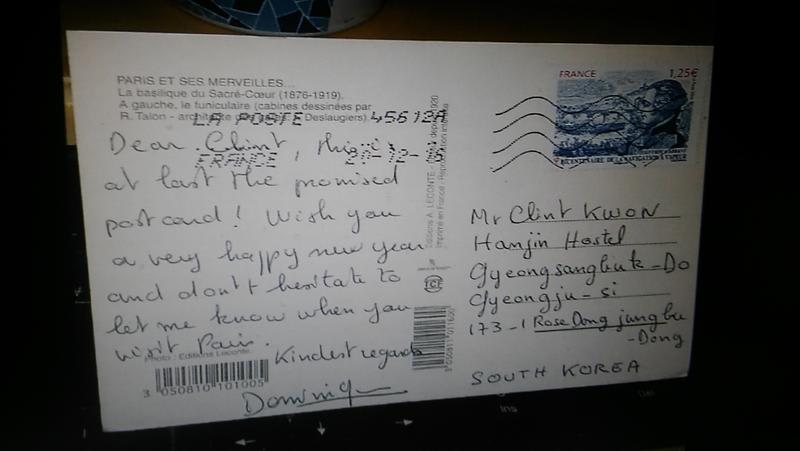 PARIS ET SES MERVEILLES...
La basilique du Sacré-Cœur (1876-1919).
A gauche, le funiculaire (cabines dessinées par
R. Talon - architecte Deslaugiers)
LA POSTE 45612A
FRANCE 20-12-
Dear Clint, this is
at last the promised
postcard! Wish you
a very happy new year
and don't hesitate to
let me know when you
visit Paris.
Kindest regards
Dominiq
Photo: Editions Leconte
3 050810 101005
Editions A. LECONTE depuis 1920
Imprimé en France - Reproduction interdite
3 050811 011600
FRANCE 1,25€
BICENTENAIRE DE LA NAVIGATION À VAPEUR
Mr Clint KWON
Hanjin Hostel
Gyeongsangbuk-Do
Gyeongju-si
173-1 Rose Dong jungbu
-Dong
SOUTH KOREA
Ins